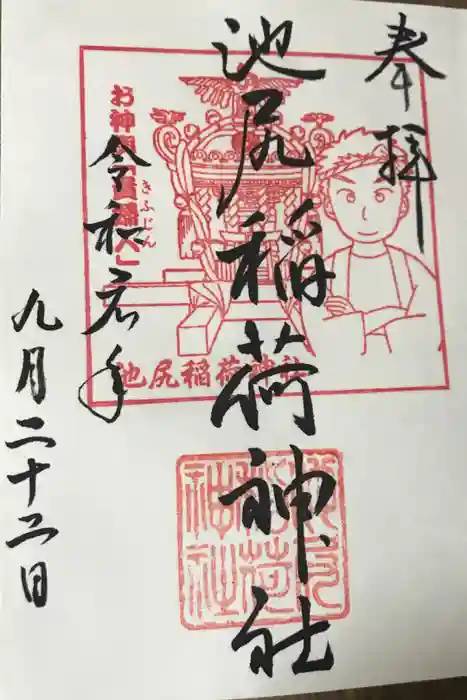 奉拝
池尻稲荷神社
令和元年
九月二十二日
お神輿「貴婦人」
きふじん
池尻稲荷神社